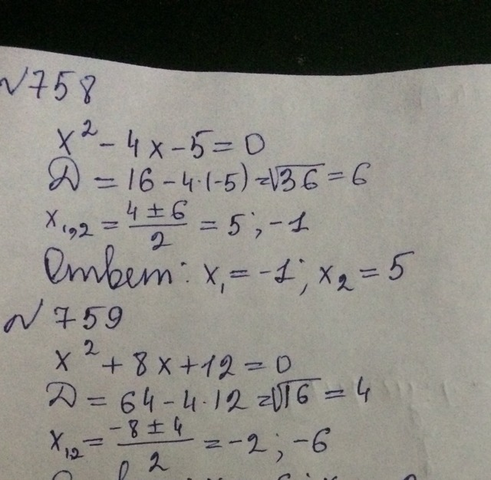 №758
x² - 4x - 5 = 0
D = 16 - 4·(-5) = √36 = 6
x₁,₂ = (4 ± 6)/2 = 5; -1
Ответ: x₁ = -1; x₂ = 5
№759
x² + 8x + 12 = 0
D = 64 - 4·12 = √16 = 4
x₁₂ = (-8 ± 4)/2 = -2; -6